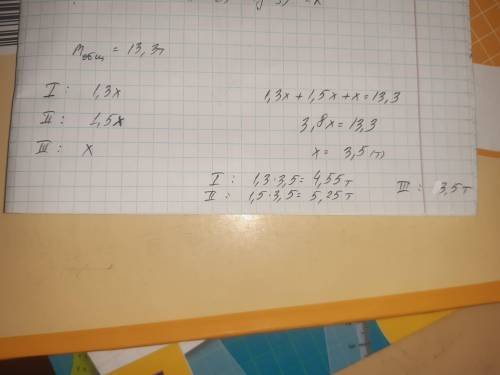 mобщ = 13,3т
I : 1,3x
II : 1,5x
III : x
1,3x + 1,5x + x = 13,3
3,8x = 13,3
x = 3,5 (т)
I : 1,3·3,5 = 4,55т
II : 1,5·3,5 = 5,25т
III : 3,5т